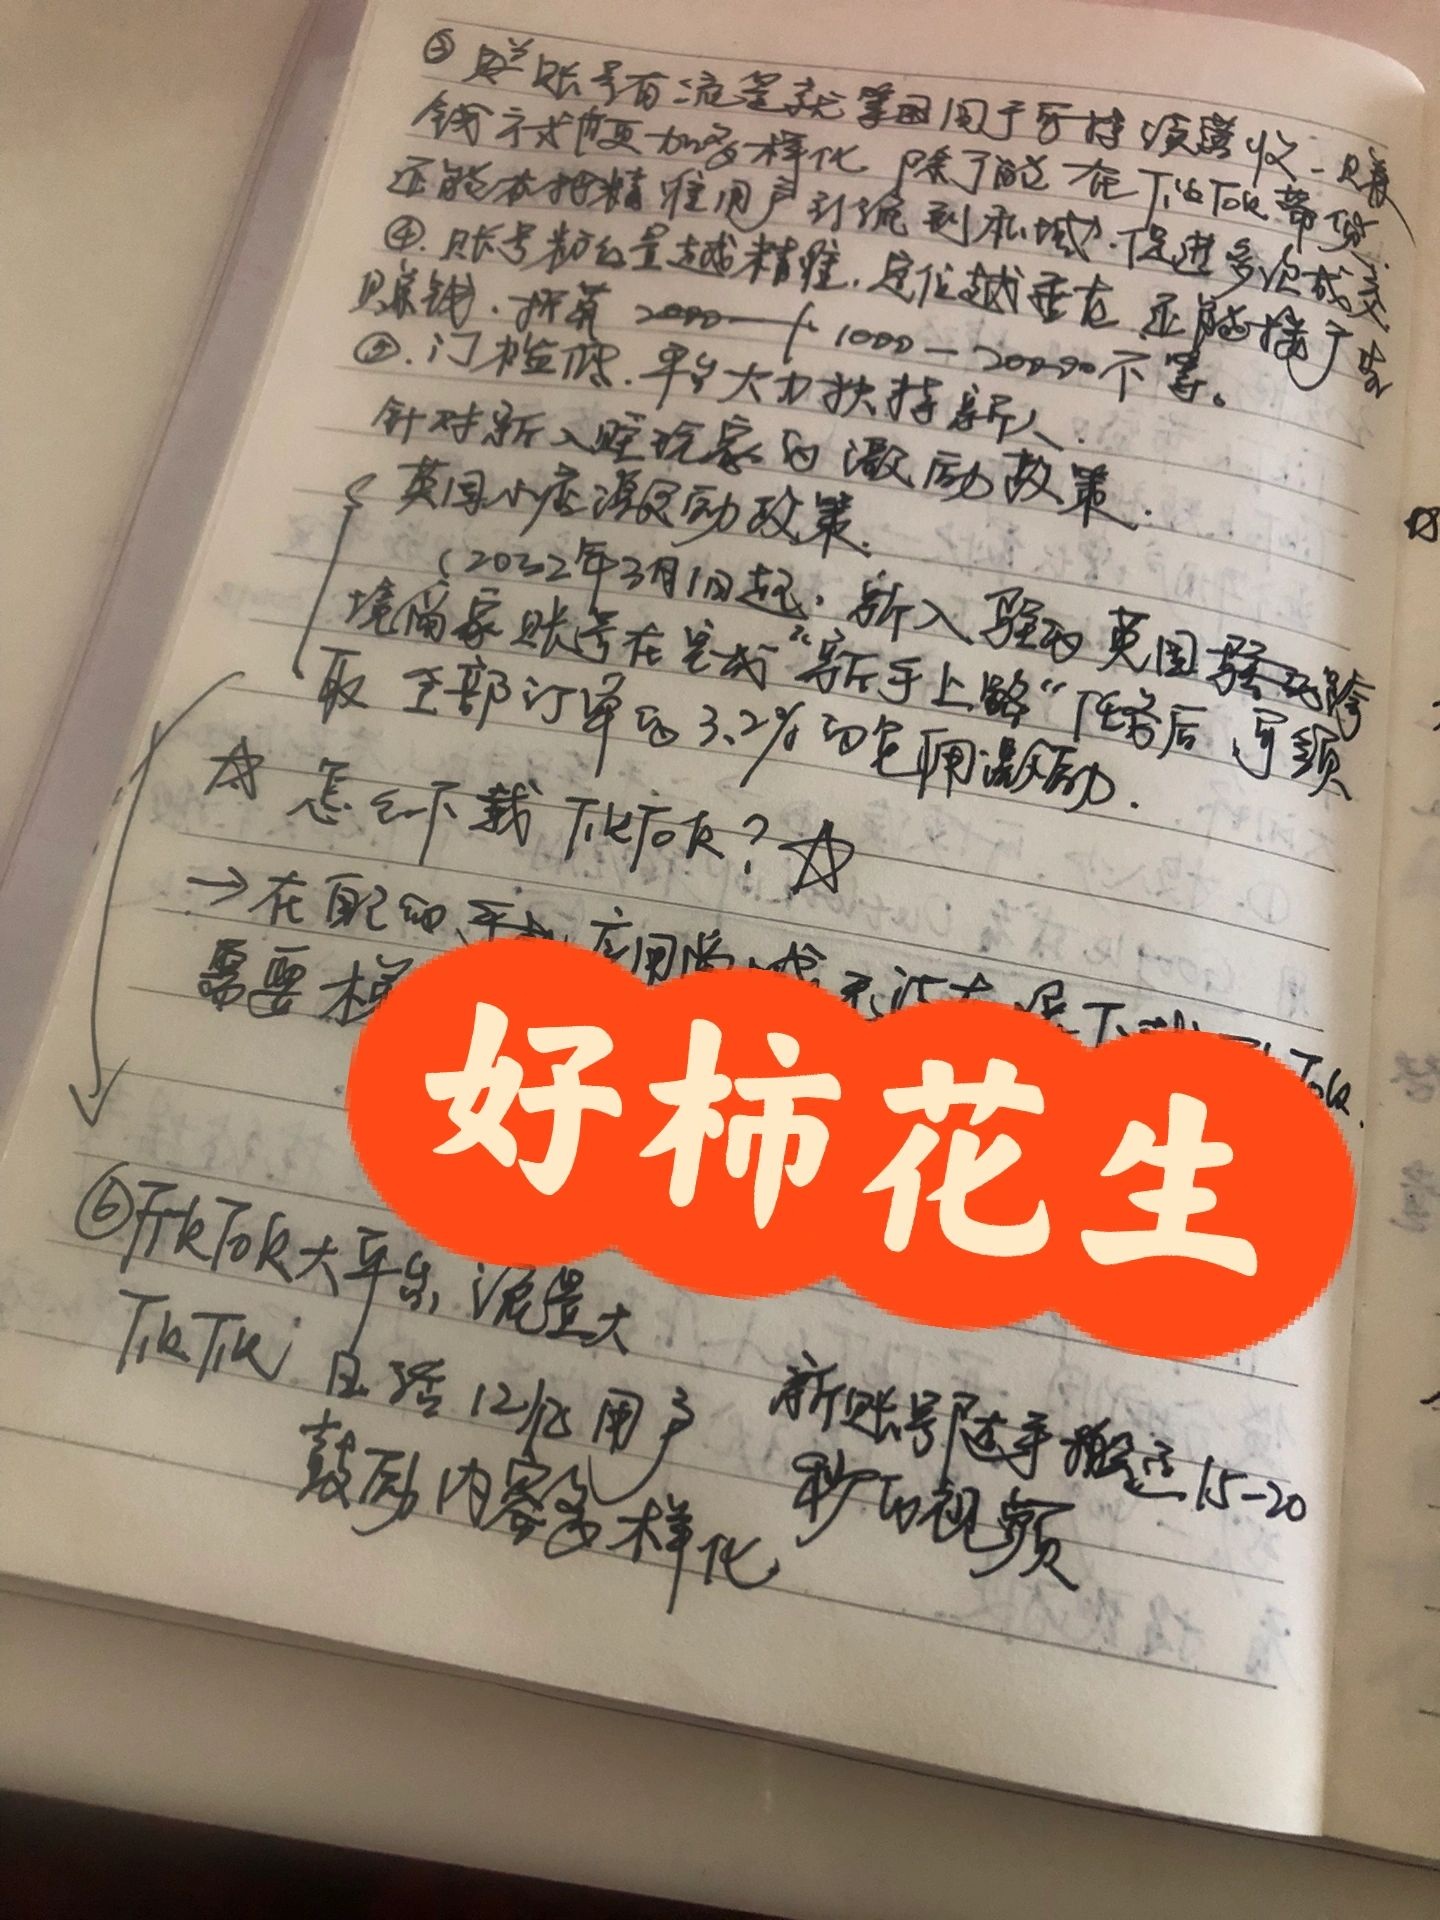 ③ 账号有流量就等 用于可持续营收一赚
钱方式更加多样化 除了能在TikTok带货
还能在把精准用户引流到私域,促进多次成交.
④.账号粉丝量越精准.定位越垂直 还能接广告
赚钱.折算 1000—20000不等。
⑤.门槛低.平台大力扶持新人.
针对新入驻玩家的激励政策.
英国小店激励政策.
(2022年3月1日起.新入驻的英国 跨
境商家账号在完成“新手上路”任务后 可领
取全部订单的3.2%的免佣激励.
☆ 怎么下载TikTok?☆
→在自己的手机应用商城无法直接下载TikTok.
需要梯
好柿花生
⑥TikTok大平台,流量大
TikTik 日活12亿用户
鼓励内容多样化
新账号随手搬运15-20
秒的视频